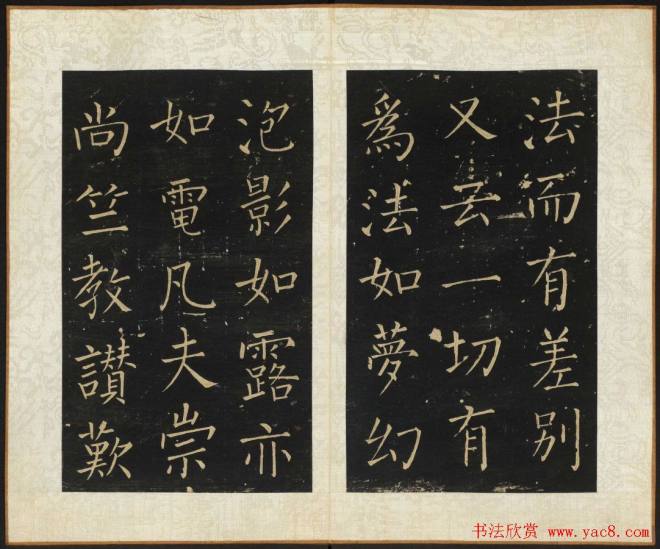 法而有差别
又云一切有
爲法如夢幻
泡影如露亦
如電凡夫崇
尚竺教讃歎
书法欣赏 www.yac8.com